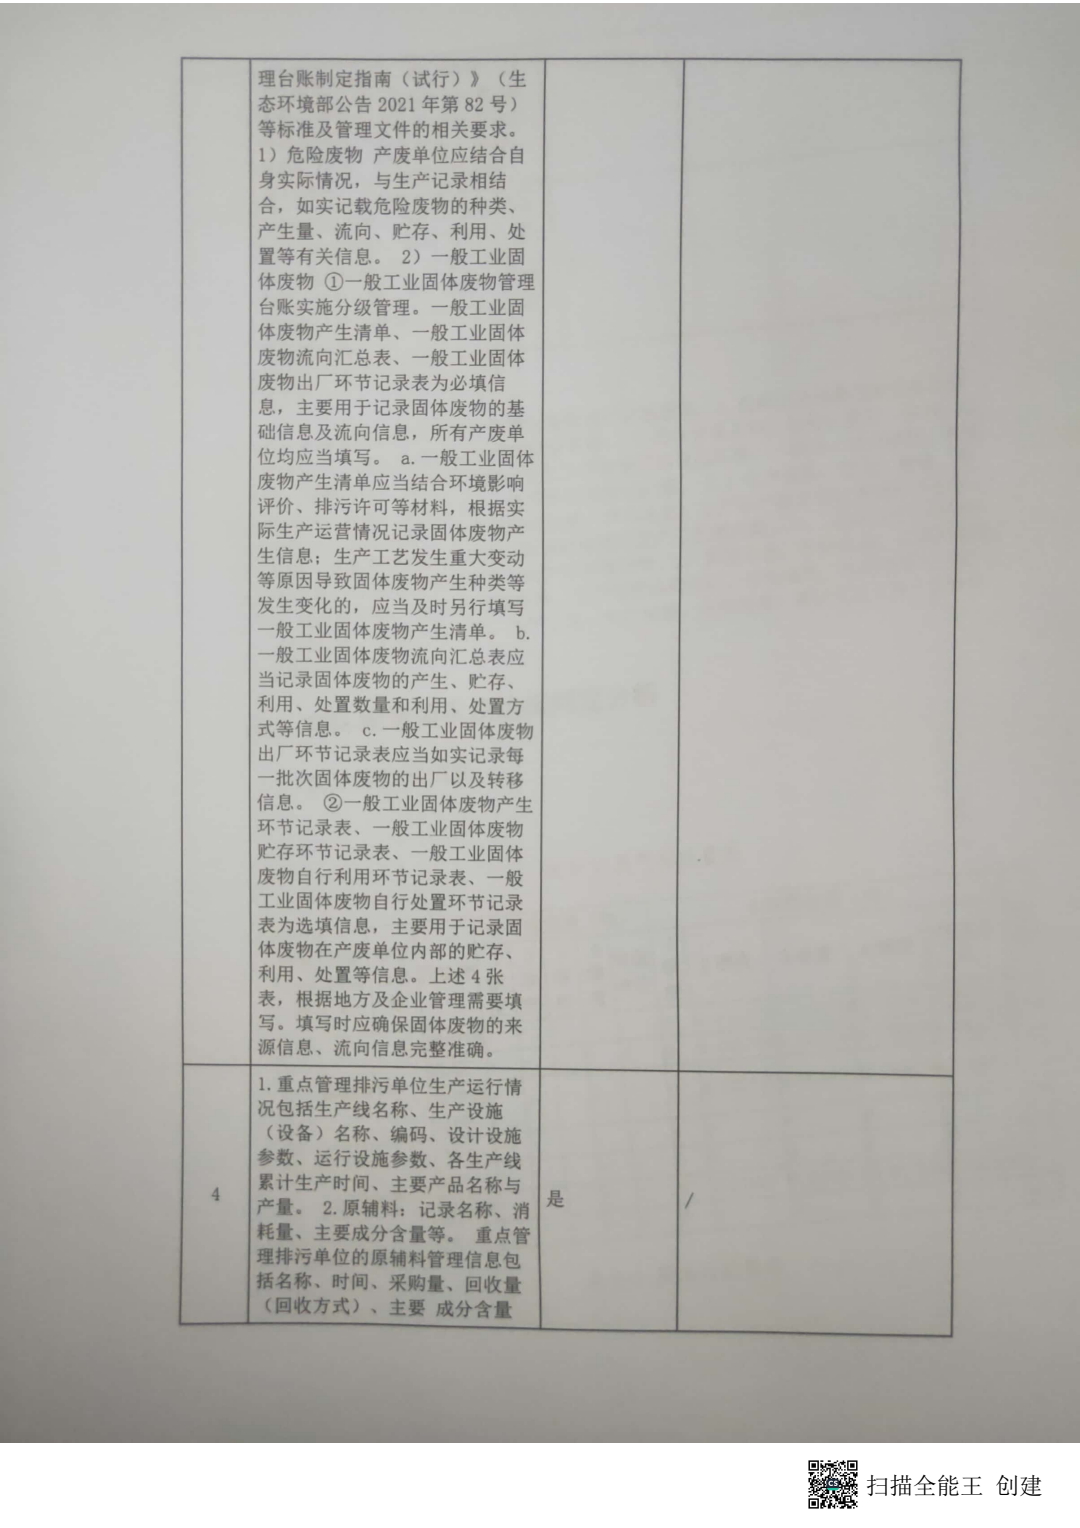 理台账制定指南（试行）》（生
态环境部公告 2021 年第 82 号）
等标准及管理文件的相关要求。
1）危险废物 产废单位应结合自
身实际情况，与生产记录相结
合，如实记载危险废物的种类、
产生量、流向、贮存、利用、处
置等有关信息。 2）一般工业固
体废物 ①一般工业固体废物管理
台账实施分级管理。一般工业固
体废物产生清单、一般工业固体
废物流向汇总表、一般工业固体
废物出厂环节记录表为必填信
息，主要用于记录固体废物的基
础信息及流向信息，所有产废单
位均应当填写。 a.一般工业固体
废物产生清单应当结合环境影响
评价、排污许可等材料，根据实
际生产运营情况记录固体废物产
生信息；生产工艺发生重大变动
等原因导致固体废物产生种类等
发生变化的，应当及时另行填写
一般工业固体废物产生清单。 b.
一般工业固体废物流向汇总表应
当记录固体废物的产生、贮存、
利用、处置数量和利用、处置方
式等信息。 c.一般工业固体废物
出厂环节记录表应当如实记录每
一批次固体废物的出厂以及转移
信息。 ②一般工业固体废物产生
环节记录表、一般工业固体废物
贮存环节记录表、一般工业固体
废物自行利用环节记录表、一般
工业固体废物自行处置环节记录
表为选填信息，主要用于记录固
体废物在产废单位内部的贮存、
利用、处置等信息。上述 4 张
表，根据地方及企业管理需要填
写。填写时应确保固体废物的来
源信息、流向信息完整准确。
4
1.重点管理排污单位生产运行情
况包括生产线名称、生产设施
（设备）名称、编码、设计设施
参数、运行设施参数、各生产线
累计生产时间、主要产品名称与
产量。 2.原辅料：记录名称、消
耗量、主要成分含量等。 重点管
理排污单位的原辅料管理信息包
括名称、时间、采购量、回收量
（回收方式）、主要 成分含量
是
/
扫描全能王 创建